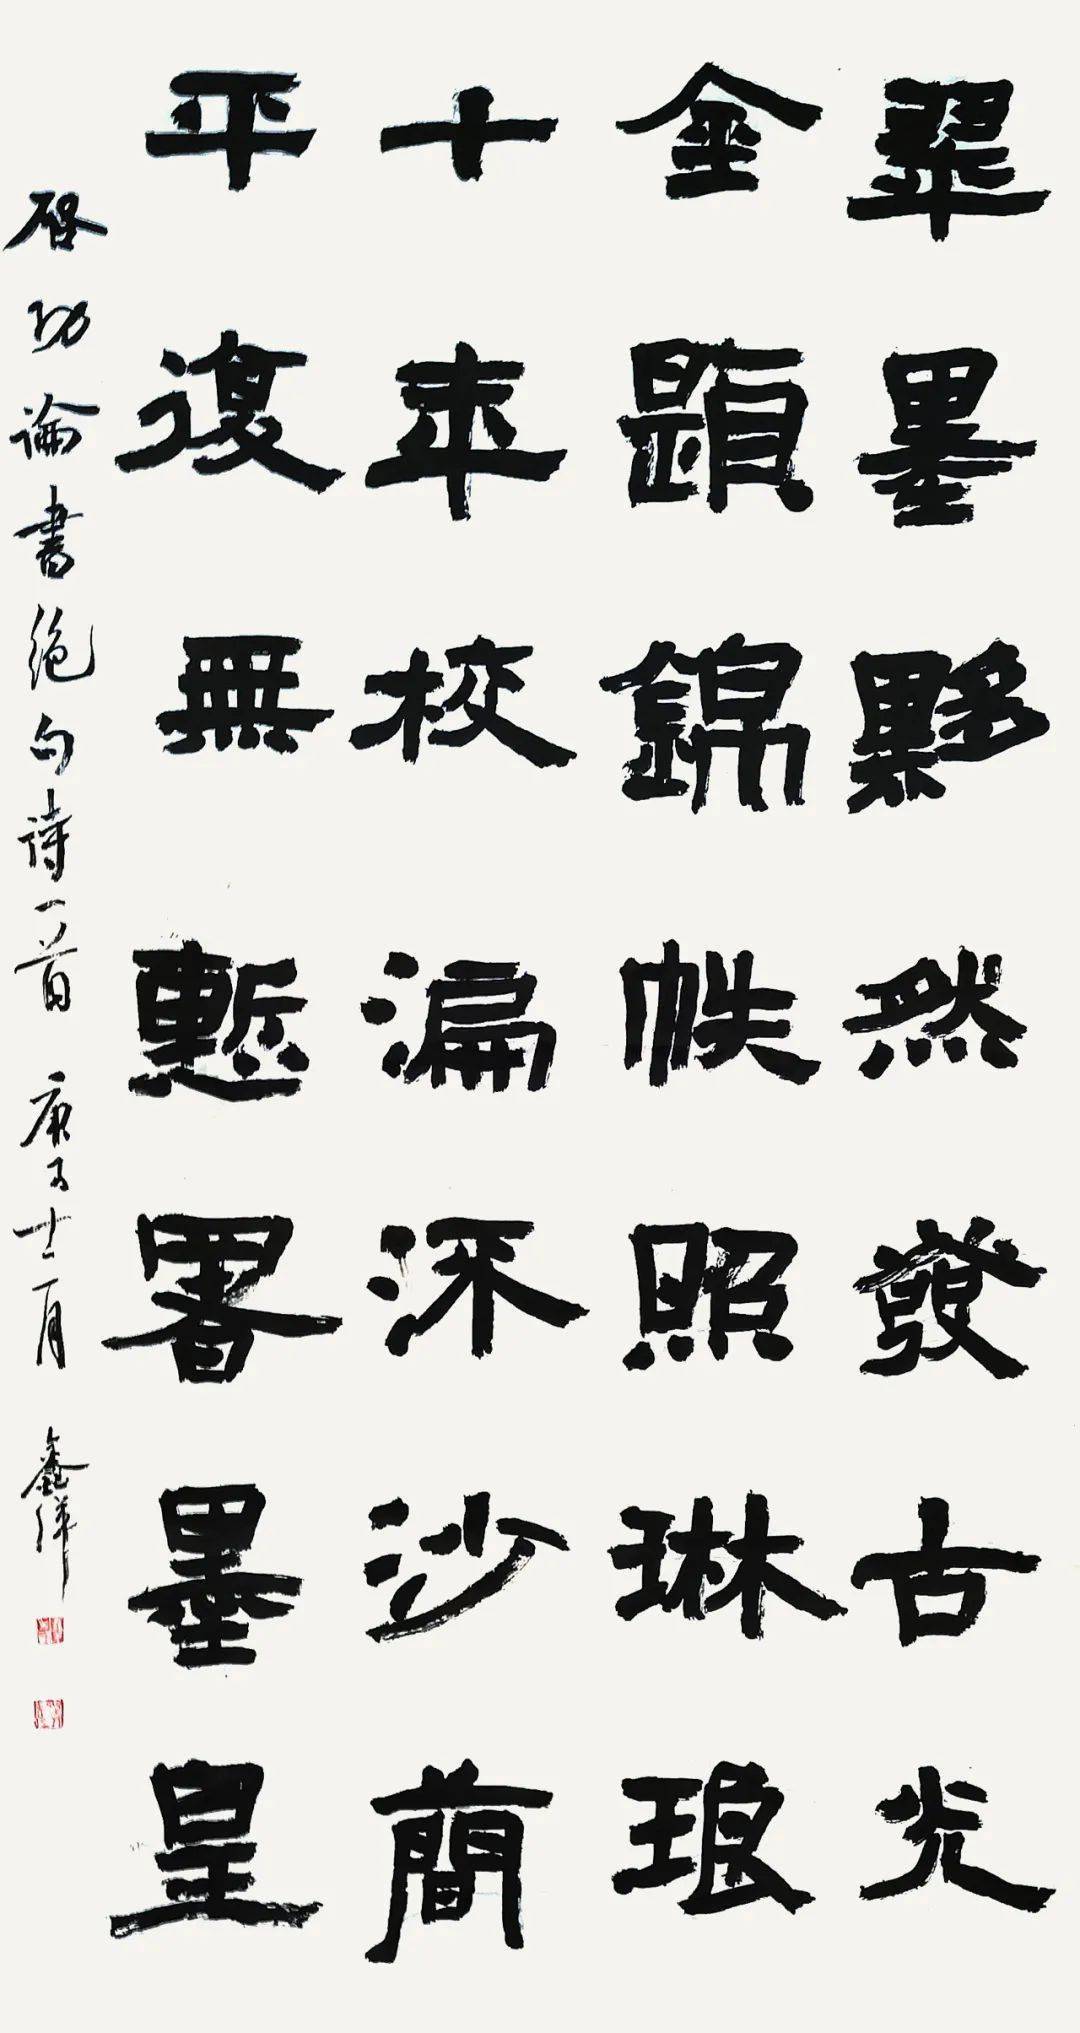 翠墨黟然發古光
金題錦帙照琳琅
十年校遍流沙簡
平復無慙署墨皇
啓功論書絕句詩一首 庚子十二月 鑫